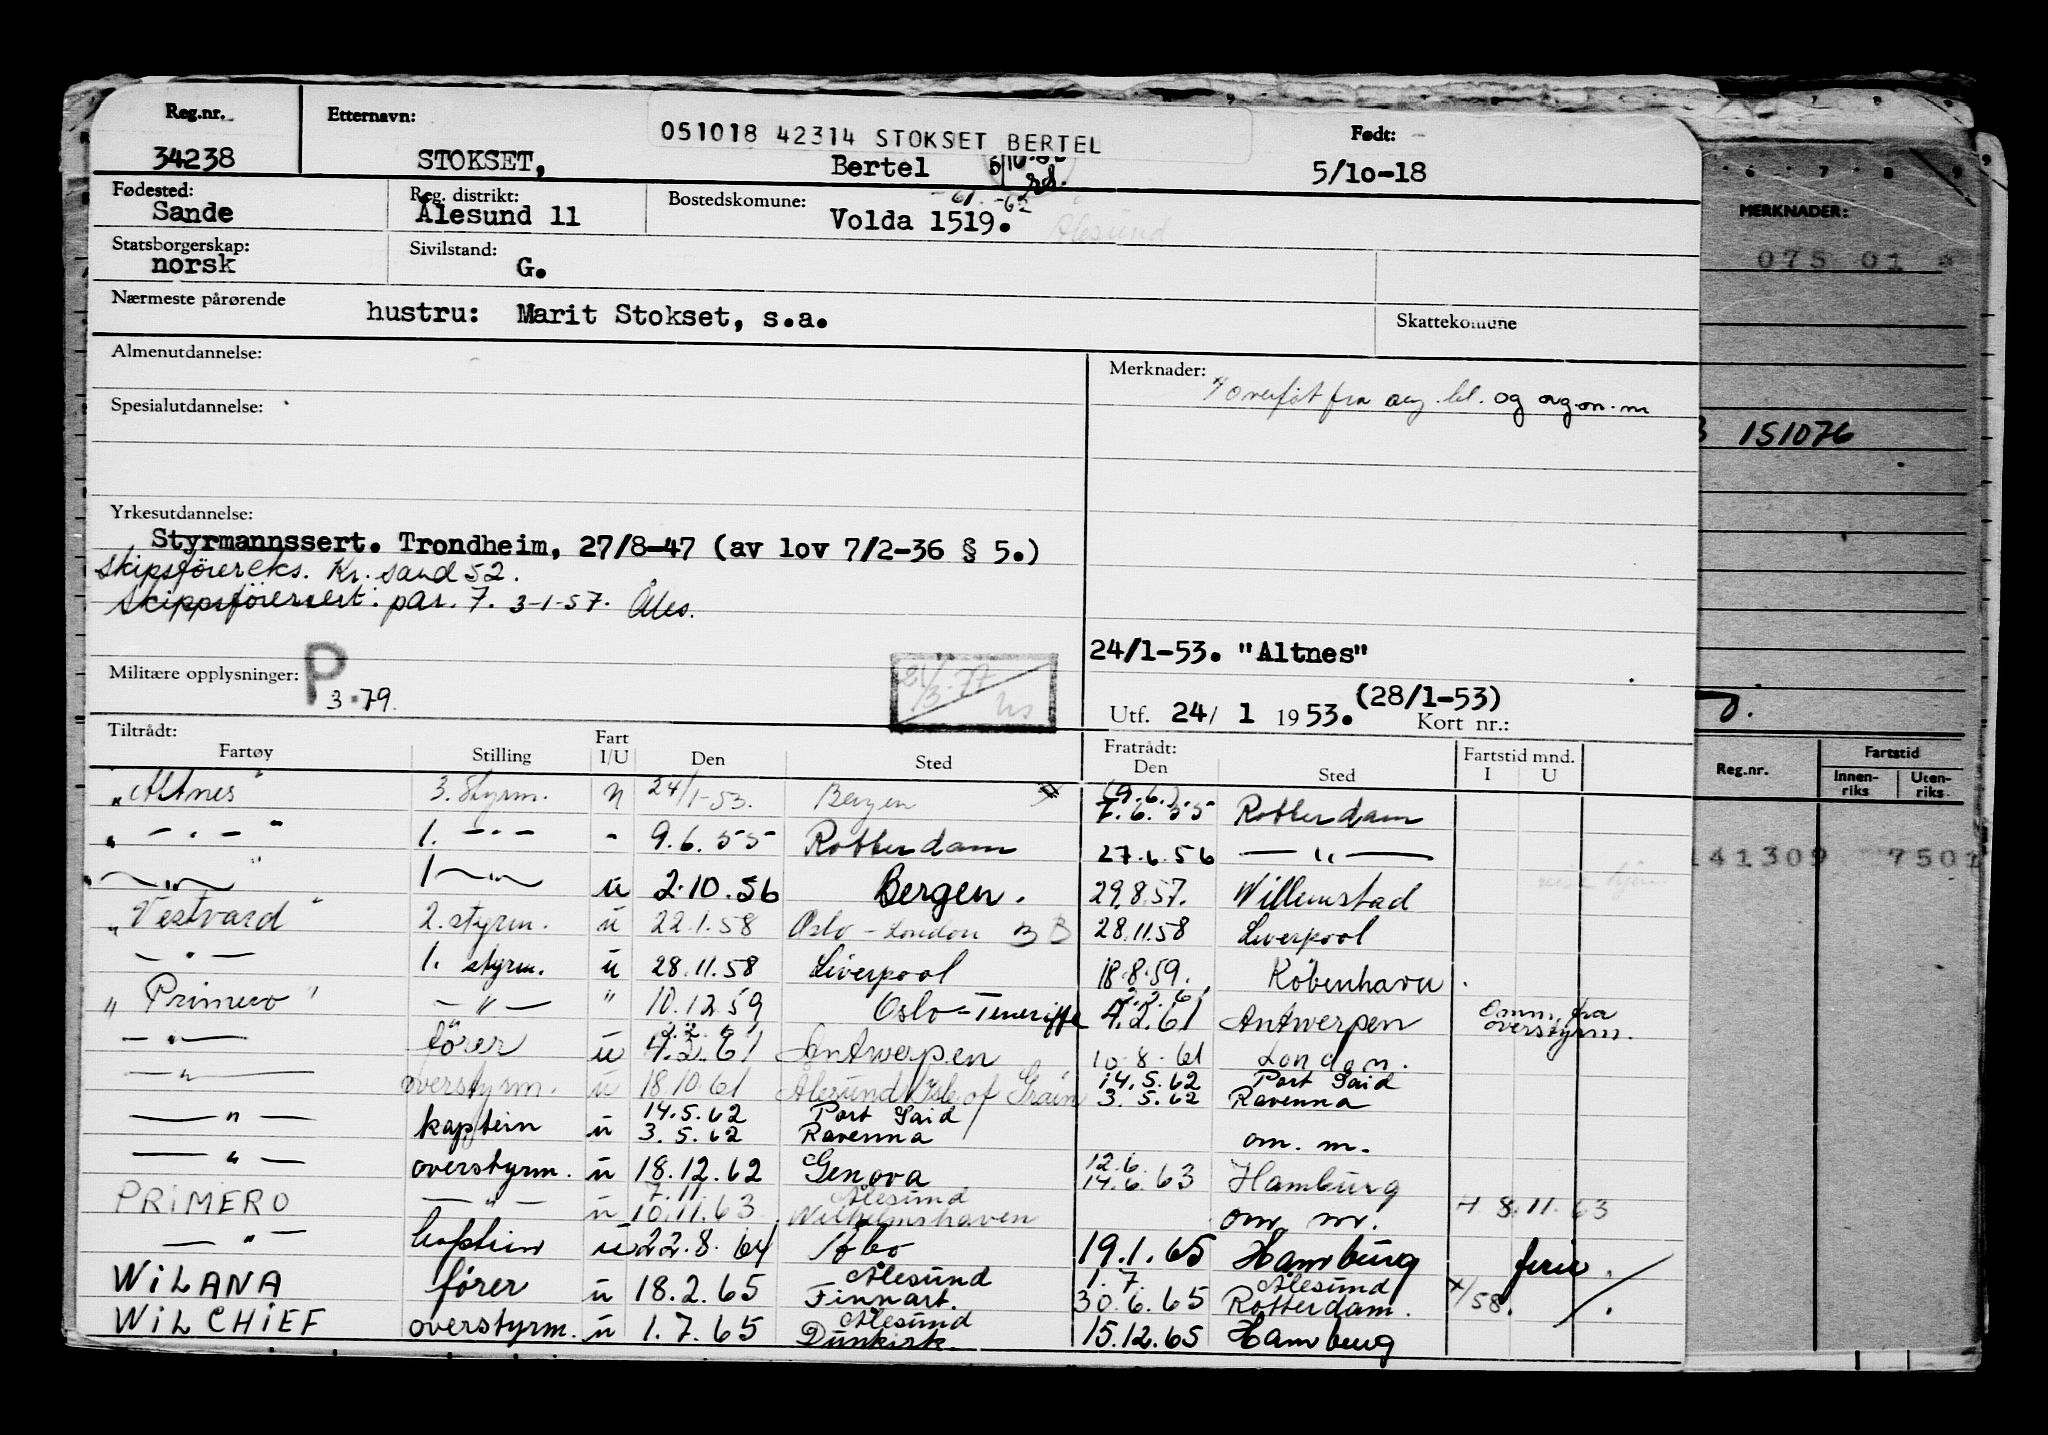 Reg.nr. Etternavn: 051018 42314 STOKSET BERTEL Født:
34238 STOKSET, Bertel 5/10-18
Fødested: Reg. distrikt: Bostedskomune:
Sande Ålesund 11 Volda 1519. Ålesund
-61. -62
Statsborgerskap: Sivilstand:
norsk G.
Nærmeste pårørende hustru: Marit Stokset, s.a. Skattekomune
Almenutdannelse: Merknader:
overført fra og org.m.m
Spesialutdannelse:
Yrkesutdannelse:
Styrmannssert. Trondheim, 27/8-47 (av lov 7/2-36 § 5.)
Skipsförereks. Kr.sand 52.
Skippsförersert. par. 7. 3-1-57. Åles.
24/1-53. "Altnes"
Militære opplysninger: P 3.79.
(28/1-53)
Utf. 24/ 1 1953. Kort nr.:
Tiltrådt: Fratrådt:
Fartøy Stilling Fart I/U Den Sted Den Sted Fartstid mnd. I U
"Altnes" 3. Styrm. 24/1-53. Bergen (9.6.) 7.6.55 Rotterdam
" — . — " 1. — . — - 9.6.55 Rotterdam 27.6.56 — " —
— " — 1 — " — u 2.10.56 Bergen. 29.8.57. Willemstad
"Vestvard" 2. styrm. u 22.1.58 Oslo - London B B 28.11.58 Liverpool
— . — 1. styrm. u 28.11.58 Liverpool 18.8.59. København.
"Primero" — " — " 10.12.59 Oslo - Teneriffe 2.2.61 4.2.61 Antwerpen Omm. fra overstyrm.
— " — förer u 2.2.61 4.2.61 Antwerpen 10.8.61 London.
— " — overstyrm. u 18.10.61 Ålesund/Isle of Grain 14.5.62 Port Said 3.5.62 Ravenna
— " — kaptein u 14.5.62 Port Said 3.5.62 Ravenna om. m.
— " — overstyrm. u 18.12.62 Genova 12.6. 14.6.63 Hamburg
PRIMERO — " — u 7.11. 10.11.63 Ålesund Wilhelmshaven om. m. 8.11.63
— " — kaptein u 22.8.64 Åbo 19.1.65 Hamburg ferie.
WILANA förer u 18.2.65 Ålesund Finnart. 1.7. 30.6.65 Ålesund Rotterdam. x/58.
WILCHIEF overstyrm. u 1.7.65 Ålesund Dunkirk. 15.12.65 Hamburg
6 7 8 9
MERKNADER:
075 01 *
151076
Reg.nr. Fartstid
Innen-riks Uten-riks
141309 7501